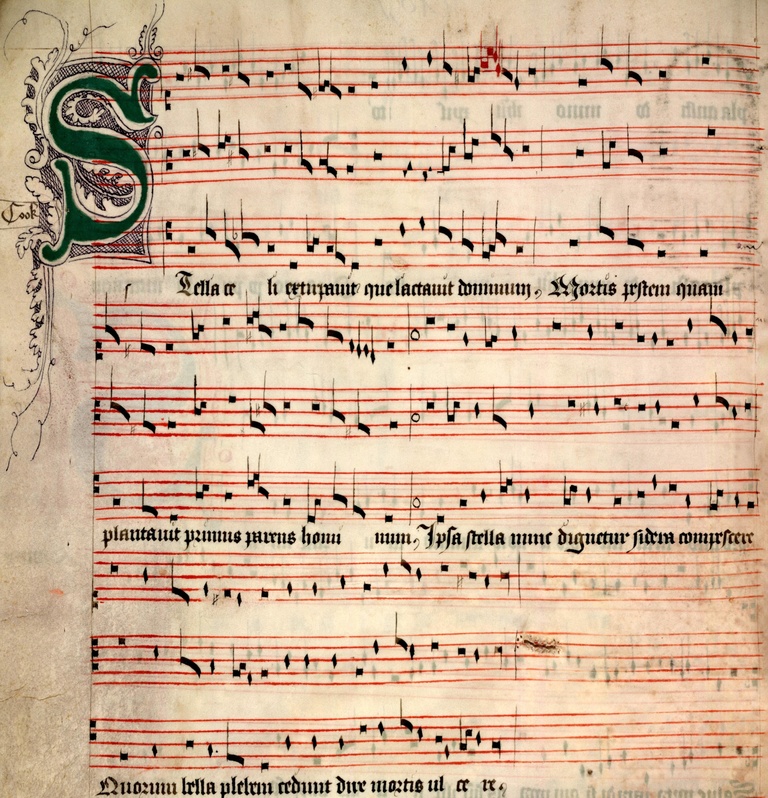 Cook
Stella ce li extirpauit que lactauit dominum, Mortis pestem quam
plantauit primus parens homi num, Ipsa stella nunc dignetur sidera compescere
Quorum bella plebem cedunt dire mortis ul ce re,